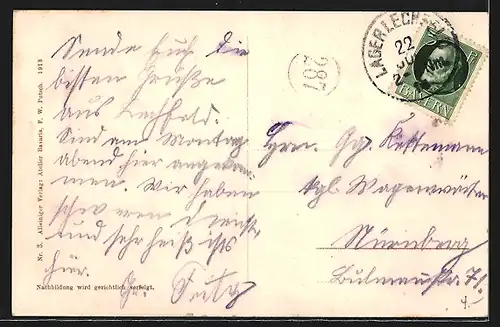 Sende Euch die
besten Grüße
aus Lechfeld.
Sind am Montag
abend hier angekom-
men. Wir haben
schweren Dienst
und sehr heiß ists
hier.
Gr. Fritz
Hrn. Gg. Kettemann
kgl. Wagenwärter
Nürnberg
Bulmannstr. 71.
4.-
287
LAGER LECHFELD
22
BAYERN
Nr. 3. Alleiniger Verlag: Atelier Bavaria, F. W. Putsch 1913
Nachbildung wird gerichtlich verfolgt.